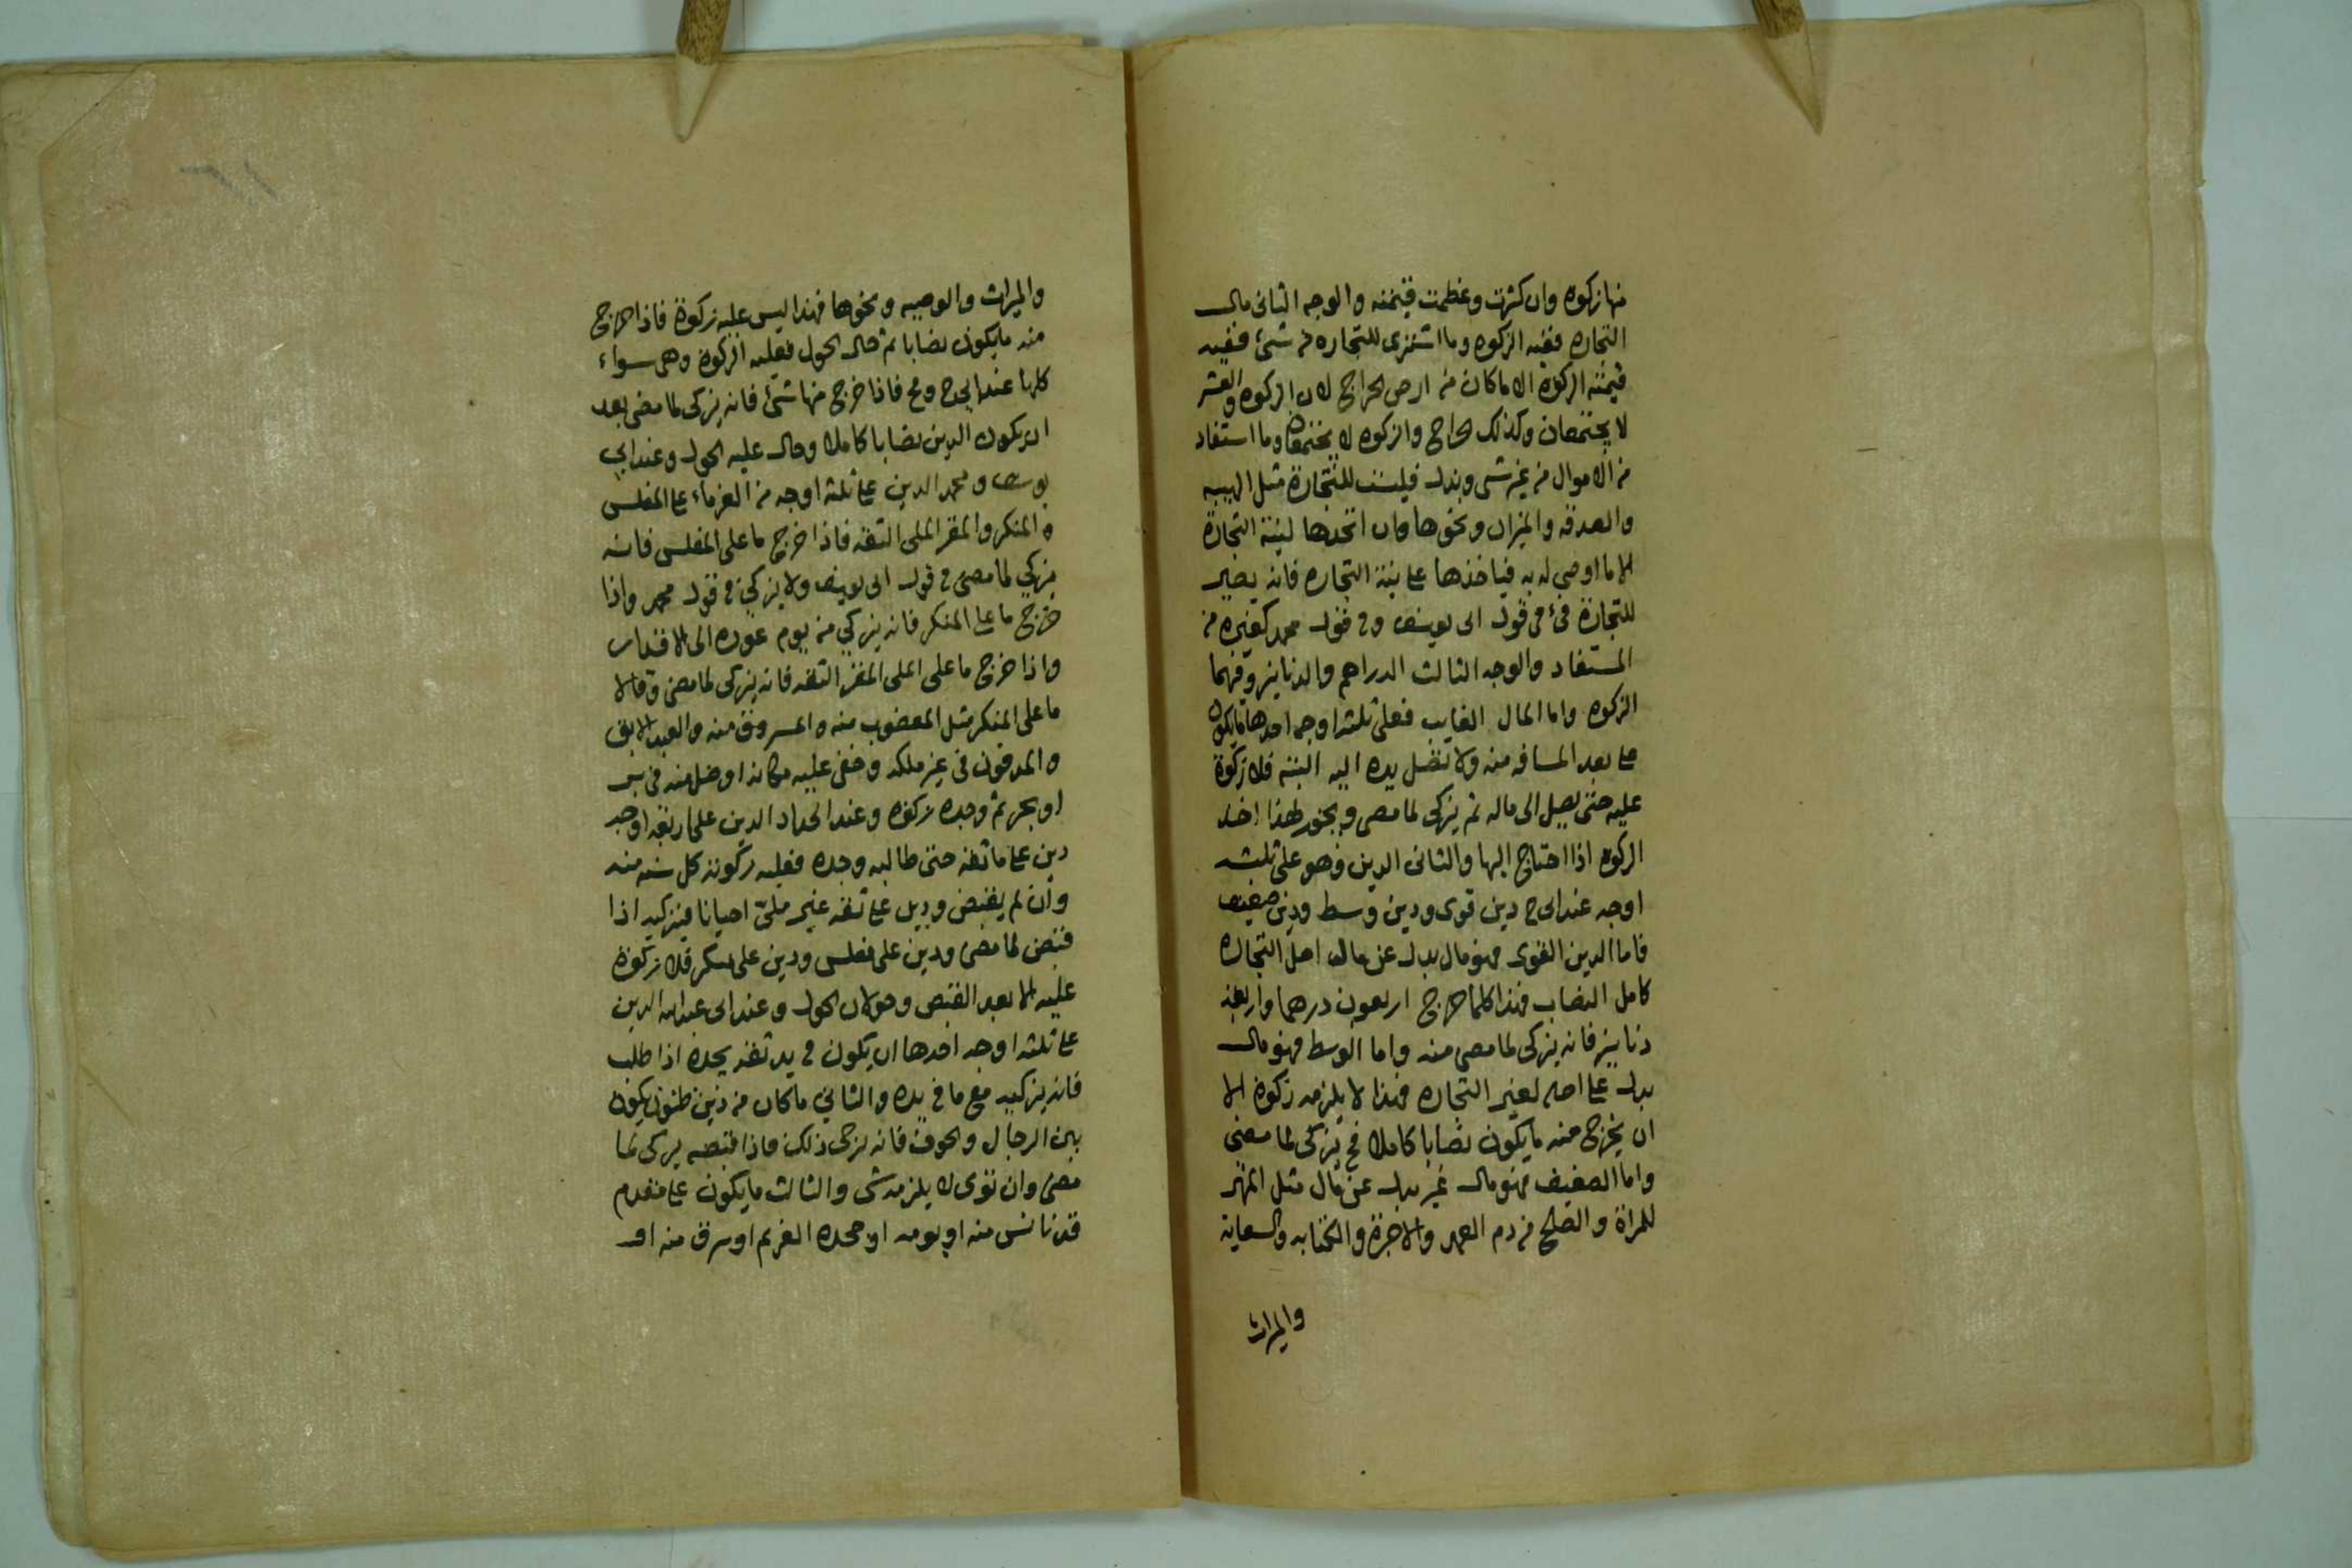 منها زكوه وان كثرت وعظمت قيمته والوجه الثانى مال
التجاره ففيه الزكوه وما اشترى للتجاره من شئ ففيه
قيمته الزكوة الا ماكان من ارض الخراج لان الزكوه والعشر
لا يجتمعان وكذلك الخراج والزكوه لا يجتمعان وما استفاد
من الاموال من غير شى وبدل فليست للتجارة مثل الهبه
والصدقه والميراث ونحوها وان اتخذها لنية التجارة
الا ما اوصى له به فياخذها على نية التجاره فانه يصير
للتجارة فى قول ابى يوسف وفى قول محمد كغيره من
المستفاد والوجه الثالث الدراهم والدنانير وفيهما
الزكوه واما المال الغايب فعلى ثلثه اوجه احدها مايكون
على بعد المسافه منه ولا تصل يده اليه البته فلا زكوة
عليه حتى يصل الى ماله ثم يزكى لما مضى ويجوز لهذا اخذ
الزكوه اذا احتاج اليها والثانى الدين وهو على ثلثه
اوجه عند ابى ح دين قوى ودين وسط ودين ضعيف
فاما الدين القوى فهو مال بدل عن مال اصل التجاره
كامل النصاب فهذا كلما خرج اربعون درهما واربعة
دنانير فانه يزكى لما مضى منه واما الوسط فهو مال
بدل على اصله لغير التجاره فهذا لا يلزمه زكوة الا
ان يخرج منه مايكون نصابا كاملا فح يزكى لما مضى
واما الضعيف فهو مال غير بدل عن مال مثل المهر
للمراة والصلح من دم العمد والاجرة والكتابه والسعايه
والميراث
والميراث والوصيه ونحوها فهذا ليس عليه زكوة فاذا خرج
منه مايكون نصابا ثم حال الحول فعليه الزكوة وهى سواء
كلها عند ابى ح ومح فاذا خرج منها شئ فانه يزكى لما مضى بعد
ان يكون الدين نصابا كاملا وحال عليه الحول وعند ابى
يوسف ومحمد الدين على ثلثه اوجه من الغرماء على المفلس
والمنكر والمقر الملى الثقه فاذا خرج ما على المفلس فانه
يزكي لما مضى فى قول ابى يوسف ولا يزكي فى قول محمد واذا
خرج ما على المنكر فانه يزكي من يوم عوده الى الاقرار
واذا خرج ما على الملى المقر الثقه فانه يزكى لما مضى وقالا
ما على المنكر مثل المغصوب منه والمسروق منه والعبد الابق
والمدفون فى غير ملكه وخفى عليه مكانه او ضل منه فى بر
او بحر ثم وجده زكوه وعند الحماد الدين على اربعة اوجه
دين على ما ثقه حتى طالبه وجده فعليه زكوته كل سنه منه
وان لم يقبض ودين على ثقه غير ملئ احيانا فيزكيه اذا
قبض لما مضى ودين على مفلس ودين على منكر فلا زكوة
عليه الا بعد القبض وحولان الحول وعند ابى عبد الله الدين
على ثلثه اوجه احدها ان يكون فى يد ثقه يجده اذا طلب
فانه يزكيه مع ما فى يده والثاني ماكان من دين ظنون يكون
بين الرجال والخوف فانه يرجى ذلك فاذا قبضه يزكى لما
مضى وان توى لا يلزمه شى والثالث مايكون على معدم
قد تانس منه او يومه او جحده الغريم او سرق منه او